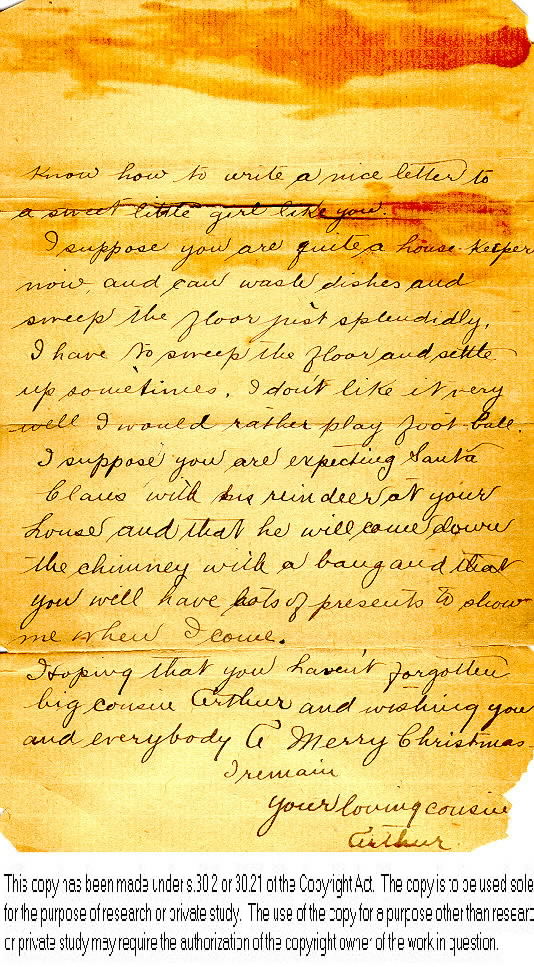 know how to write a nice letter to
a sweet little girl like you.
I suppose you are quite a house-keeper
now, and can wash dishes and
sweep the floor just splendidly.
I have to sweep the floor and settle
up sometimes. I don't like it very
well I would rather play foot-ball.
I suppose you are expecting Santa
Claus with his reindeer at your
house and that he will come down
the chimney with a bang and that
you will have lots of presents to show
me when I come.
Hoping that you haven't forgotten
big cousin Arthur and wishing you
and everybody A Merry Christmas
I remain
your loving cousin
Arthur.
This copy has been made under s.30.2 or 30.21 of the Copyright Act. The copy is to be used sole
for the purpose of research or private study. The use of the copy for a purpose other than researc
or private study may require the authorization of the copyright owner of the work in question.